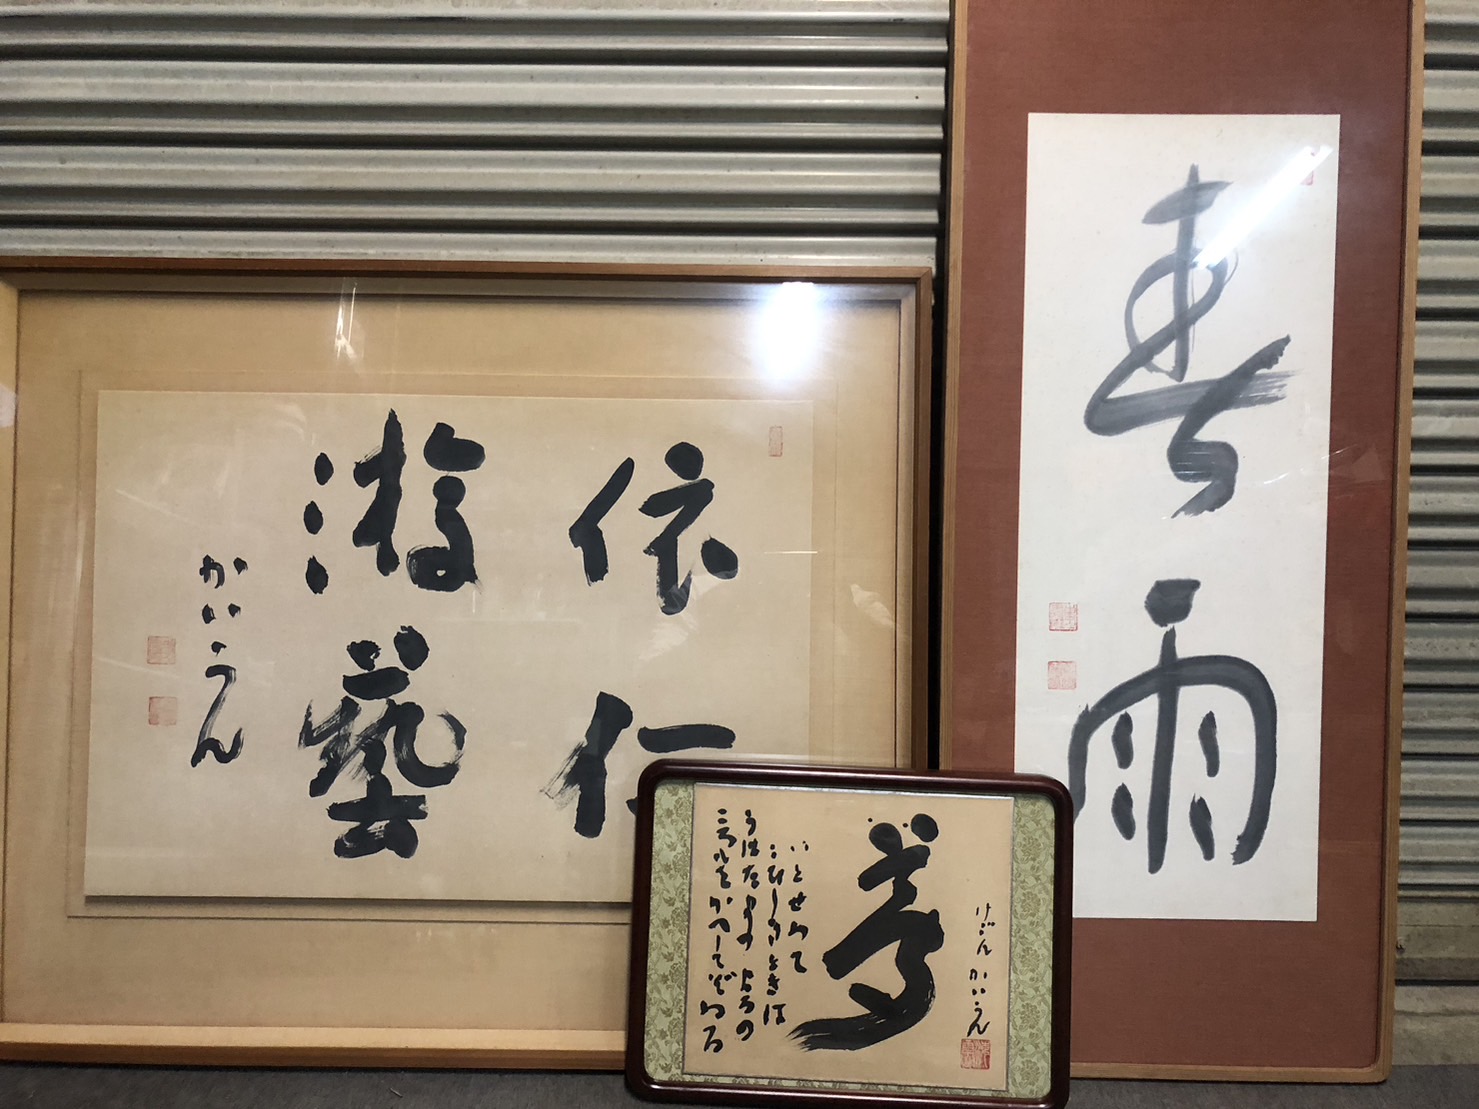 依仁
游藝
かいうん
春雨
けごん かいうん
夢
いとせめて
こひしきときは
うはたまの よるの
ころもをかへしてぞ